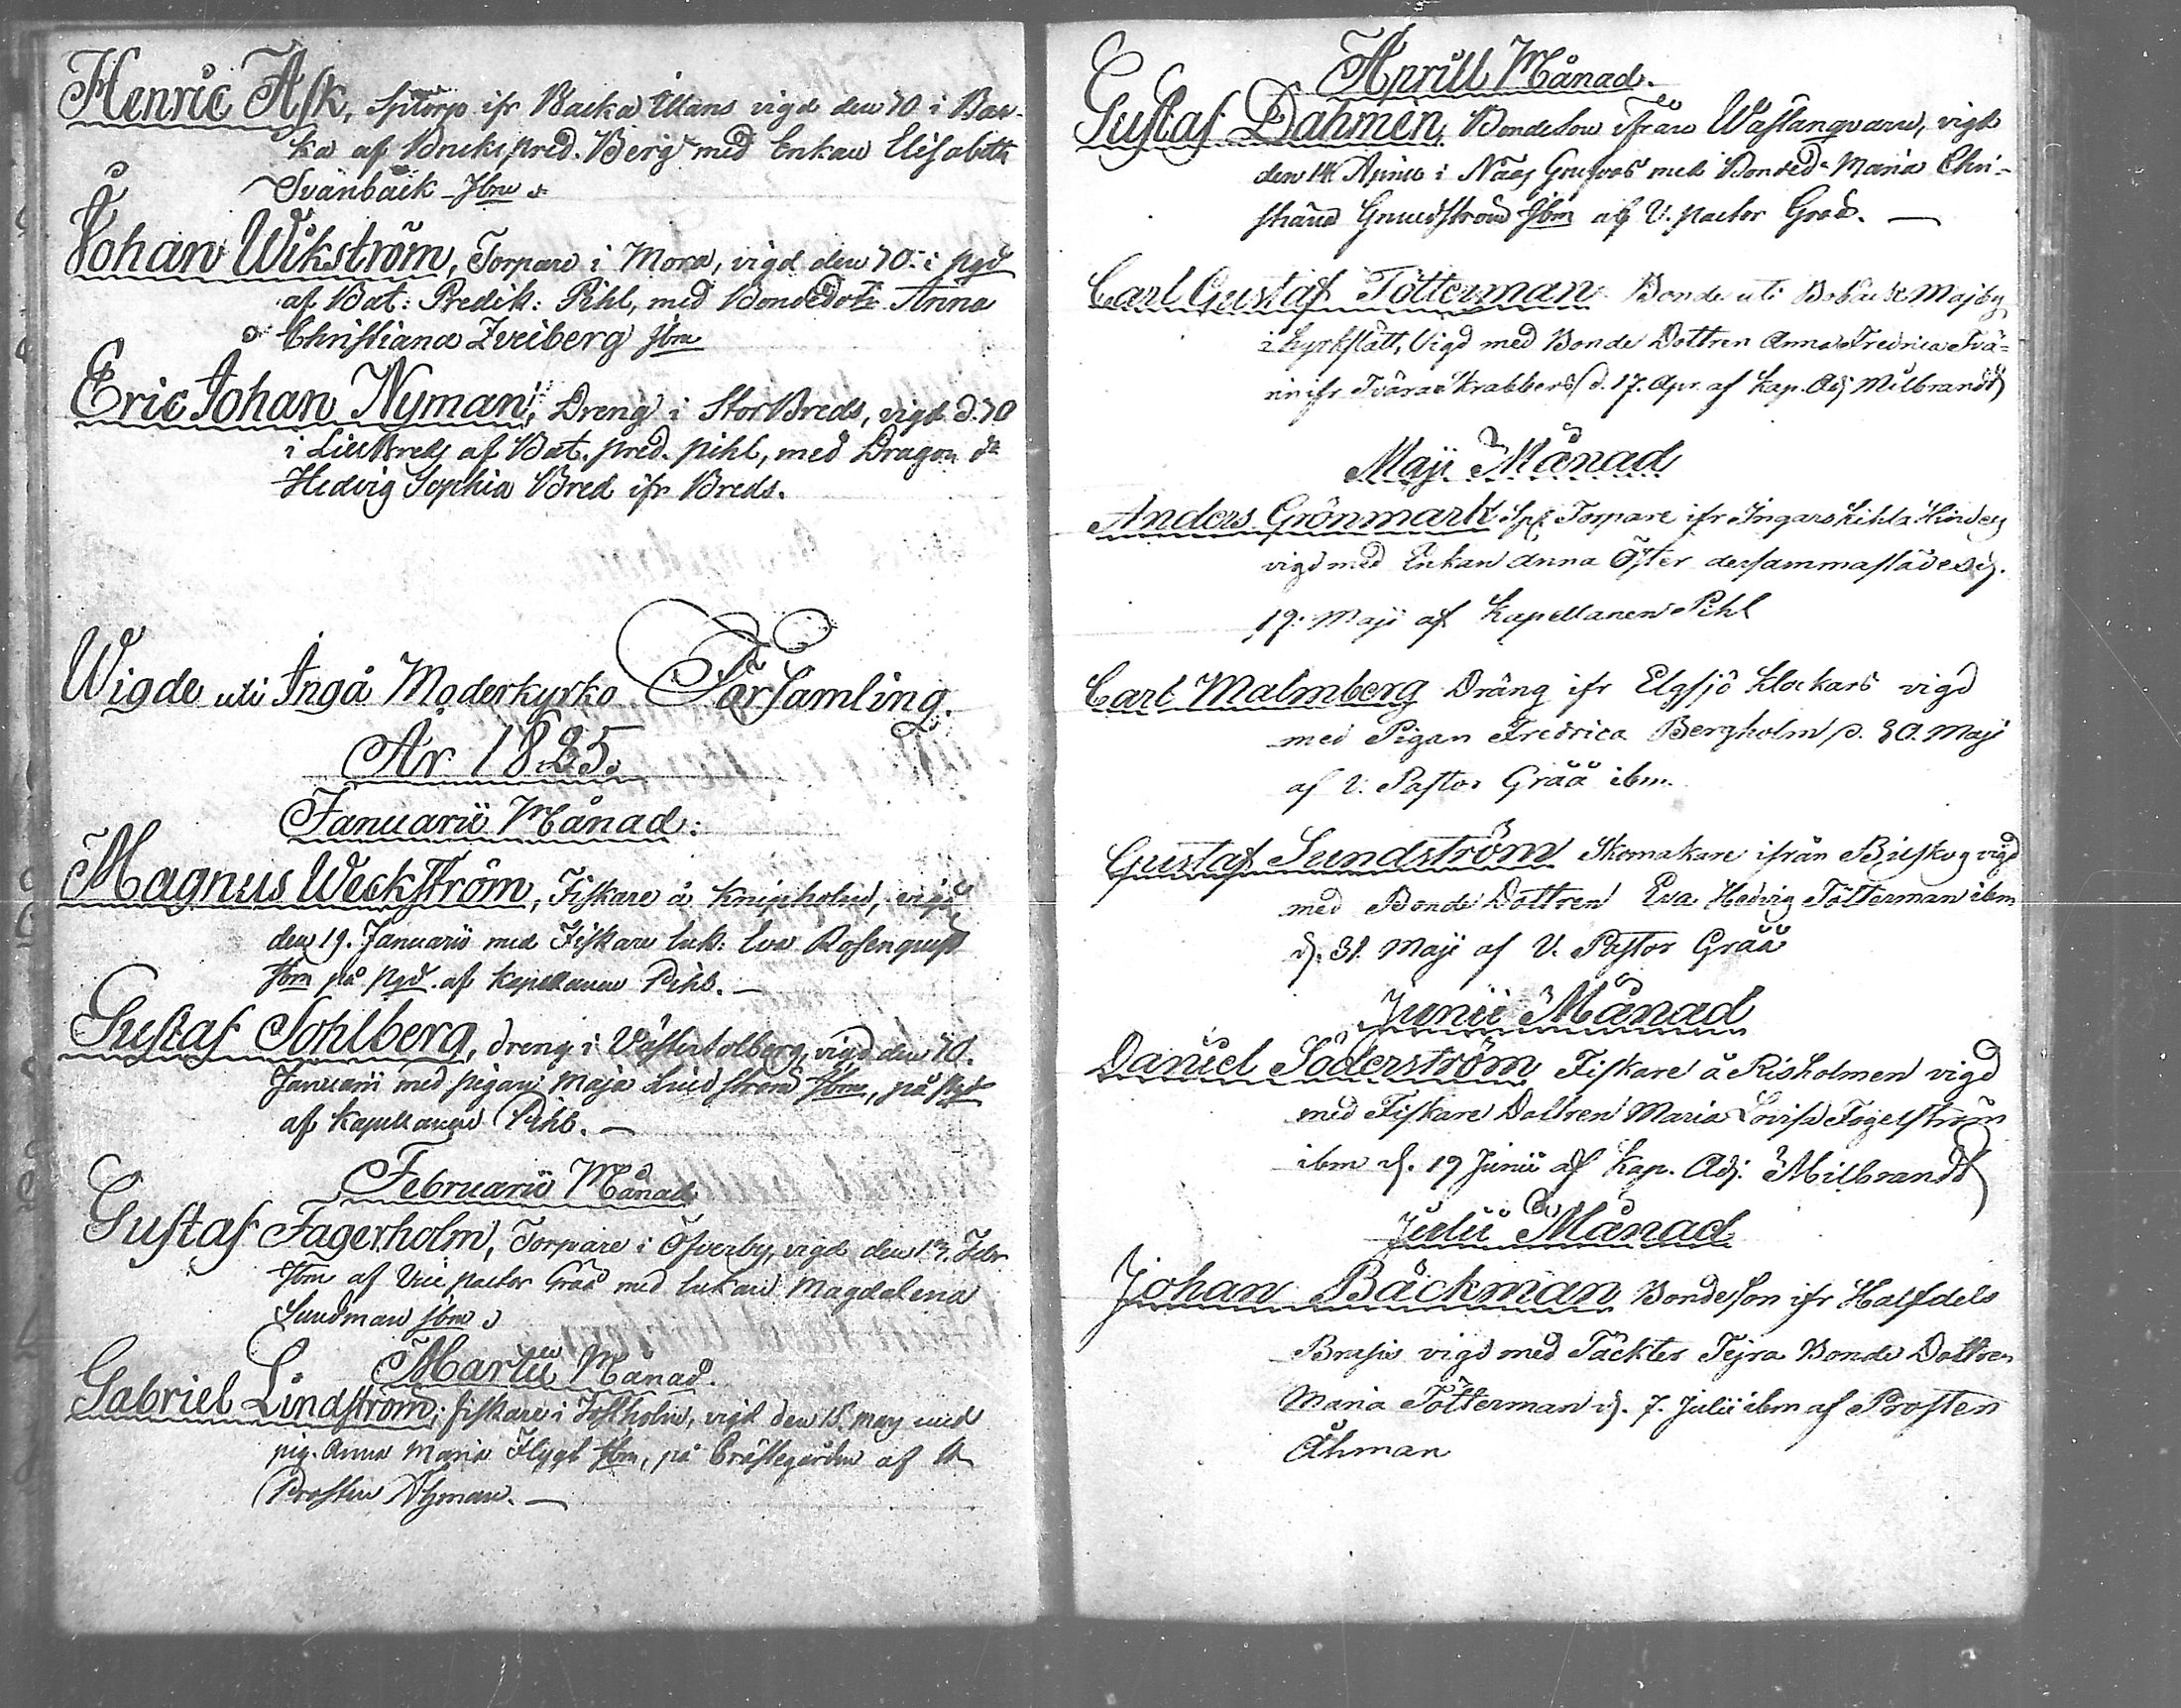 Henric Ask, Spitorp ifr Backa Ettans vigd den 30 i Bac-
ka af Bruks pred. Berg med Enkan Elisabeth
Svänbäck Ibm
Johan Wikström, Torpare i Mora, vigd den 30. i pgd
af Bat: Predik: Pihl, med Bondedotr Anna
Christiana Zveiberg Ibm
Eric Johan Nyman, Dreng i StorBreds, vigd d. 30
i LillBreds af Bat. pred. pihl, med Dragon dr
Hedvig Sophia Bred ifr Breds.
Wigde uti Ingå Moderkyrko Församling.
År 1825.
Januarii Månad:
Magnus Weckström, Fiskare å Knipholm, vigd
den 19. Januarii med Fiskare Enk: Eva Rosenquist
Ibm på Pgd. af Kapellanen Pihl.
Gustaf Sohlberg, dreng i Västertolberg, vigd den 30.
Januarii med pigan Maja Lindström Ibm, på pgd
af Kapellanen Pihl.
Februarii Månad
Gustaf Fagerholm, Torpare i Öfverby, vigd den 13. Febr
Ibm af Vice pastor Gråå med Enkan Magdalena
Sundman Ibm
Martii Månad.
Gabriel Lindström, fiskare i Joskholm, vigd den 15. may med
pig. Anna Maria Flygt Ibm, på Prästegården af
Prosten Åhman.
Aprill Månad.
Gustaf Dahmén, Bondeson ifrån Wästanqvarn, vigd
den 14 Aprill i Näas Grefves med Bonded. Maria Chri-
stiana Grundström Ibm af V. pastor Gråå.
Carl Gustaf Tötterman Bonde uti Bobäck Majby
i Kyrkslätt, Vigd med Bonde Dottren Anna Fredrica Trä-
nin ifr Träras Krabbers d. 17. Apr. af Kap. Adj Milbrandt
Maji Månad
Anders Grönmark Spf Torpare ifr Ingarskihla Hinders
vigd med Enkan Anna Öster dersammastädes d.
19. Maji af Kapellanen Pihl
Carl Malmberg Dräng ifr Elgsjö Klockars vigd
med Pigan Fredrica Bergholm d. 30. Maji
af V. Pastor Gråå ibm.
Gustaf Sundström Skomakare ifrån Bruskog vigd
med Bonde Dottren Eva Hedvig Tötterman ibm
d. 31. Maji af V. Pastor Gråå
Junii Månad
Daniel Söderström Fiskare å Risholmen vigd
med Fiskare Dottren Maria Lovisa Fogelström
ibm d. 19 Junii af Kap. Adj: Milbrandt
Julii Månad
Johan Bäckman Bondeson ifr Halfdels
Brusis vigd med Täckter Tejra Bonde Dottren
Maria Tötterman d. 7. Julii ibm af Prosten
Åhman